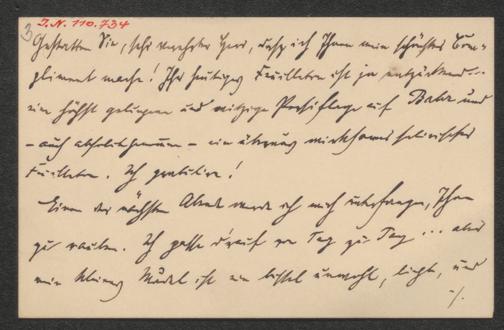 3
I.N. 110.734
Gestatten Sie, sehr verehrter Herr, dass ich Ihnen mein schönstes Com-
pliment mache! Ihr heutiges Feuilleton ist ja entzückend...
eine höchst gelungene und witzige Persiflage auf Bahr und
– auch absolut genommen – ein überaus wirksames satirisches
Feuilleton. Ich gratulire!
Einen der nächsten Abende werde ich mich unterfangen, Ihnen
zu rauben. Ich hoffe darauf von Tag zu Tag ... aber
mein kleines Mädel ist ein bissel unwohl, liegt, und
./.